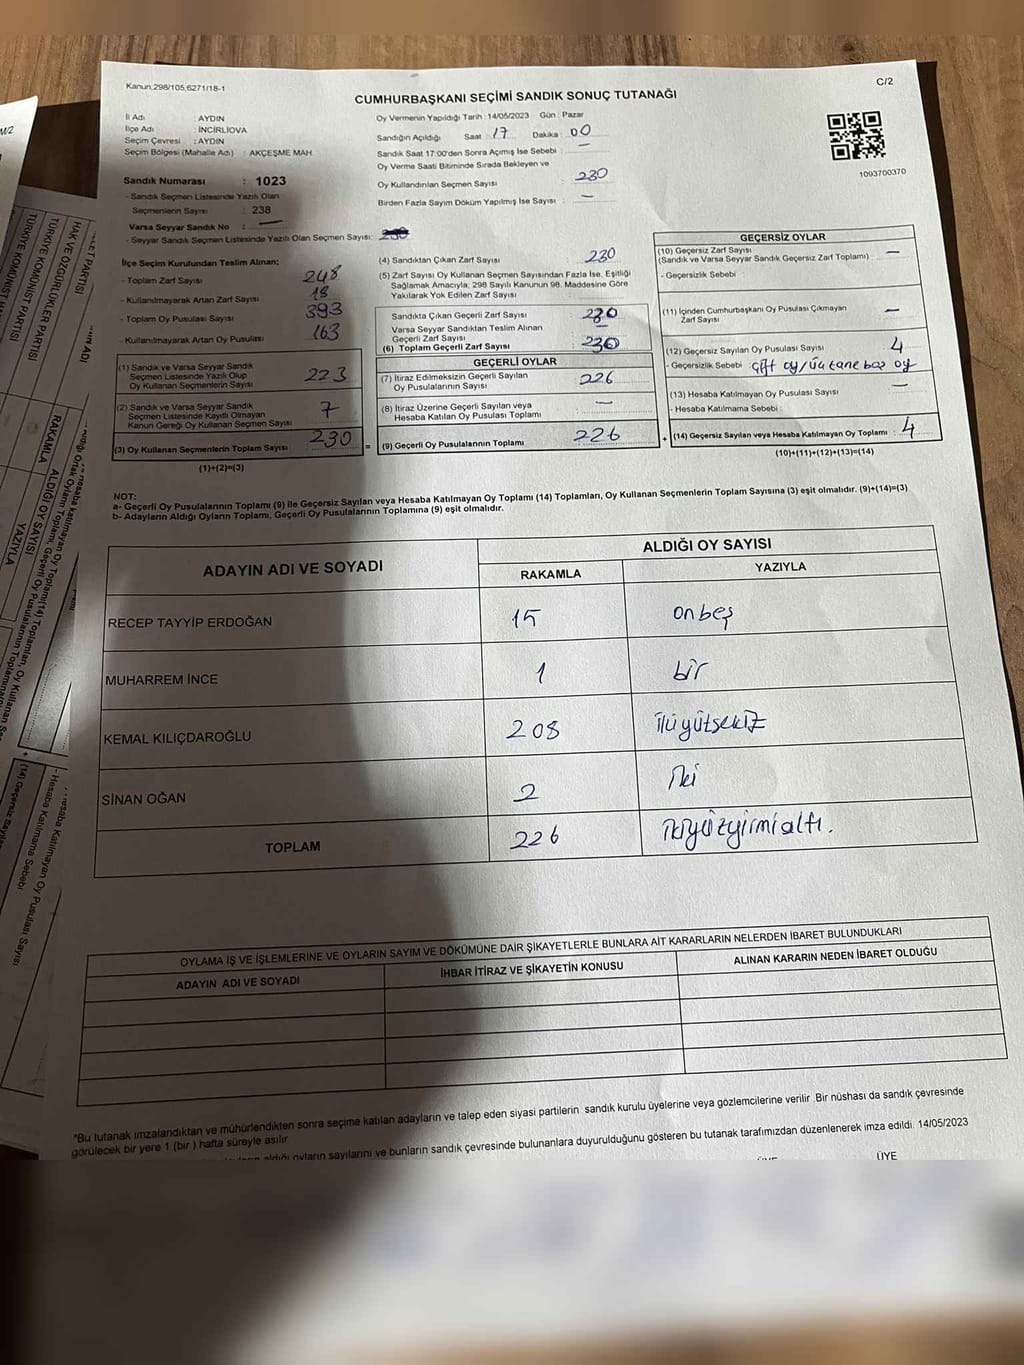 Kanun;298/105,6271/18-1
C/2
CUMHURBAŞKANI SEÇİMİ SANDIK SONUÇ TUTANAĞI
İl Adı : AYDIN
İlçe Adı : İNCİRLİOVA
Seçim Çevresi : AYDIN
Seçim Bölgesi (Mahalle Adı) : AKÇEŞME MAH.
Sandık Numarası : 1023
- Sandık Seçmen Listesinde Yazılı Olan
Seçmenlerin Sayısı : 238
Varsa Seyyar Sandık No : —
- Seyyar Sandık Seçmen Listesinde Yazılı Olan Seçmen Sayısı:
Oy Vermenin Yapıldığı Tarih :14/05/2023 Gün : Pazar
Sandığın Açıldığı Saat : 17 Dakika : 00
Sandık Saat 17:00'den Sonra Açmış İse Sebebi : —
Oy Verme Saati Bitiminde Sırada Bekleyen ve
Oy Kullandırılan Seçmen Sayısı : 230
Birden Fazla Sayım Döküm Yapılmış İse Sayısı : —
1093700370
İlçe Seçim Kurulundan Teslim Alınan;
- Toplam Zarf Sayısı : 248
- Kullanılmayarak Artan Zarf Sayısı : 18
- Toplam Oy Pusulası Sayısı : 393
- Kullanılmayarak Artan Oy Pusulası : 163
(1) Sandık ve Varsa Seyyar Sandık
Seçmen Listesinde Yazılı Olup
Oy Kullanan Seçmenlerin Sayısı : 223
(2) Sandık ve Varsa Seyyar Sandık
Seçmen Listesinde Kayıtlı Olmayan
Kanun Gereği Oy Kullanan Seçmen Sayısı : 7
(3) Oy Kullanan Seçmenlerin Toplam Sayısı : 230
(1)+(2)=(3)
(4) Sandıktan Çıkan Zarf Sayısı : 230
(5) Zarf Sayısı Oy Kullanan Seçmen Sayısından Fazla İse, Eşitliği
Sağlamak Amacıyla; 298 Sayılı Kanunun 98. Maddesine Göre
Yakılarak Yok Edilen Zarf Sayısı :
Sandıkta Çıkan Geçerli Zarf Sayısı : 230
Varsa Seyyar Sandıktan Teslim Alınan
Geçerli Zarf Sayısı : —
(6) Toplam Geçerli Zarf Sayısı : 230
GEÇERLİ OYLAR
(7) İtiraz Edilmeksizin Geçerli Sayılan
Oy Pusulalarının Sayısı : 226
(8) İtiraz Üzerine Geçerli Sayılan veya
Hesaba Katılan Oy Pusulası Toplamı : —
= (9) Geçerli Oy Pusulalarının Toplamı : 226
GEÇERSİZ OYLAR
(10) Geçersiz Zarf Sayısı
(Sandık ve Varsa Seyyar Sandık Geçersiz Zarf Toplamı) : —
- Geçersizlik Sebebi :
(11) İçinden Cumhurbaşkanı Oy Pusulası Çıkmayan
Zarf Sayısı : —
(12) Geçersiz Sayılan Oy Pusulası Sayısı : 4
- Geçersizlik Sebebi : çift oy/üç tane boş oy
(13) Hesaba Katılmayan Oy Sayısı : —
- Hesaba Katılmama Sebebi :
+ (14) Geçersiz Sayılan veya Hesaba Katılmayan Oy Toplamı : 4
(10)+(11)+(12)+(13)=(14)
NOT:
a- Geçerli Oy Pusulalarının Toplamı (9) ile Geçersiz Sayılan veya Hesaba Katılmayan Oy Toplamı (14) Toplamları, Oy Kullanan Seçmenlerin Toplam Sayısına (3) eşit olmalıdır. (9)+(14)=(3)
b- Adayların Aldığı Oyların Toplamı, Geçerli Oy Pusulalarının Toplamına (9) eşit olmalıdır.
ADAYIN ADI VE SOYADI
ALDIĞI OY SAYISI
RAKAMLA YAZIYLA
RECEP TAYYİP ERDOĞAN 15 onbeş
MUHARREM İNCE 1 bir
KEMAL KILIÇDAROĞLU 208 ikiyüzsekiz
SİNAN OĞAN 2 iki
TOPLAM 226 ikiyüzyirmialtı.
OYLAMA İŞ VE İŞLEMLERİNE VE OYLARIN SAYIM VE DÖKÜMÜNE DAİR ŞİKAYETLERLE BUNLARA AİT KARARLARIN NELERDEN İBARET BULUNDUKLARI
ADAYIN ADI VE SOYADI İHBAR İTİRAZ VE ŞİKAYETİN KONUSU ALINAN KARARIN NEDEN İBARET OLDUĞU
*Bu tutanak imzalandıktan ve mühürlendikten sonra seçime katılan adayların ve talep eden siyasi partilerin sandık kurulu üyelerine veya gözlemcilerine verilir .Bir nüshası da sandık çevresinde
görülecek bir yere 1 (bir ) hafta süreyle asılır.
aldığı oyların sayılarını ve bunların sandık çevresinde bulunanlara duyurulduğunu gösteren bu tutanak tarafımızdan düzenlenerek imza edildi. 14/05/2023
ÜYE
HAK VE ÖZGÜRLÜKLER PARTİSİ
TÜRKİYE KOMÜNİST PARTİSİ
RAKAMLA
ALDIĞI OY SAYISI
YAZIYLA